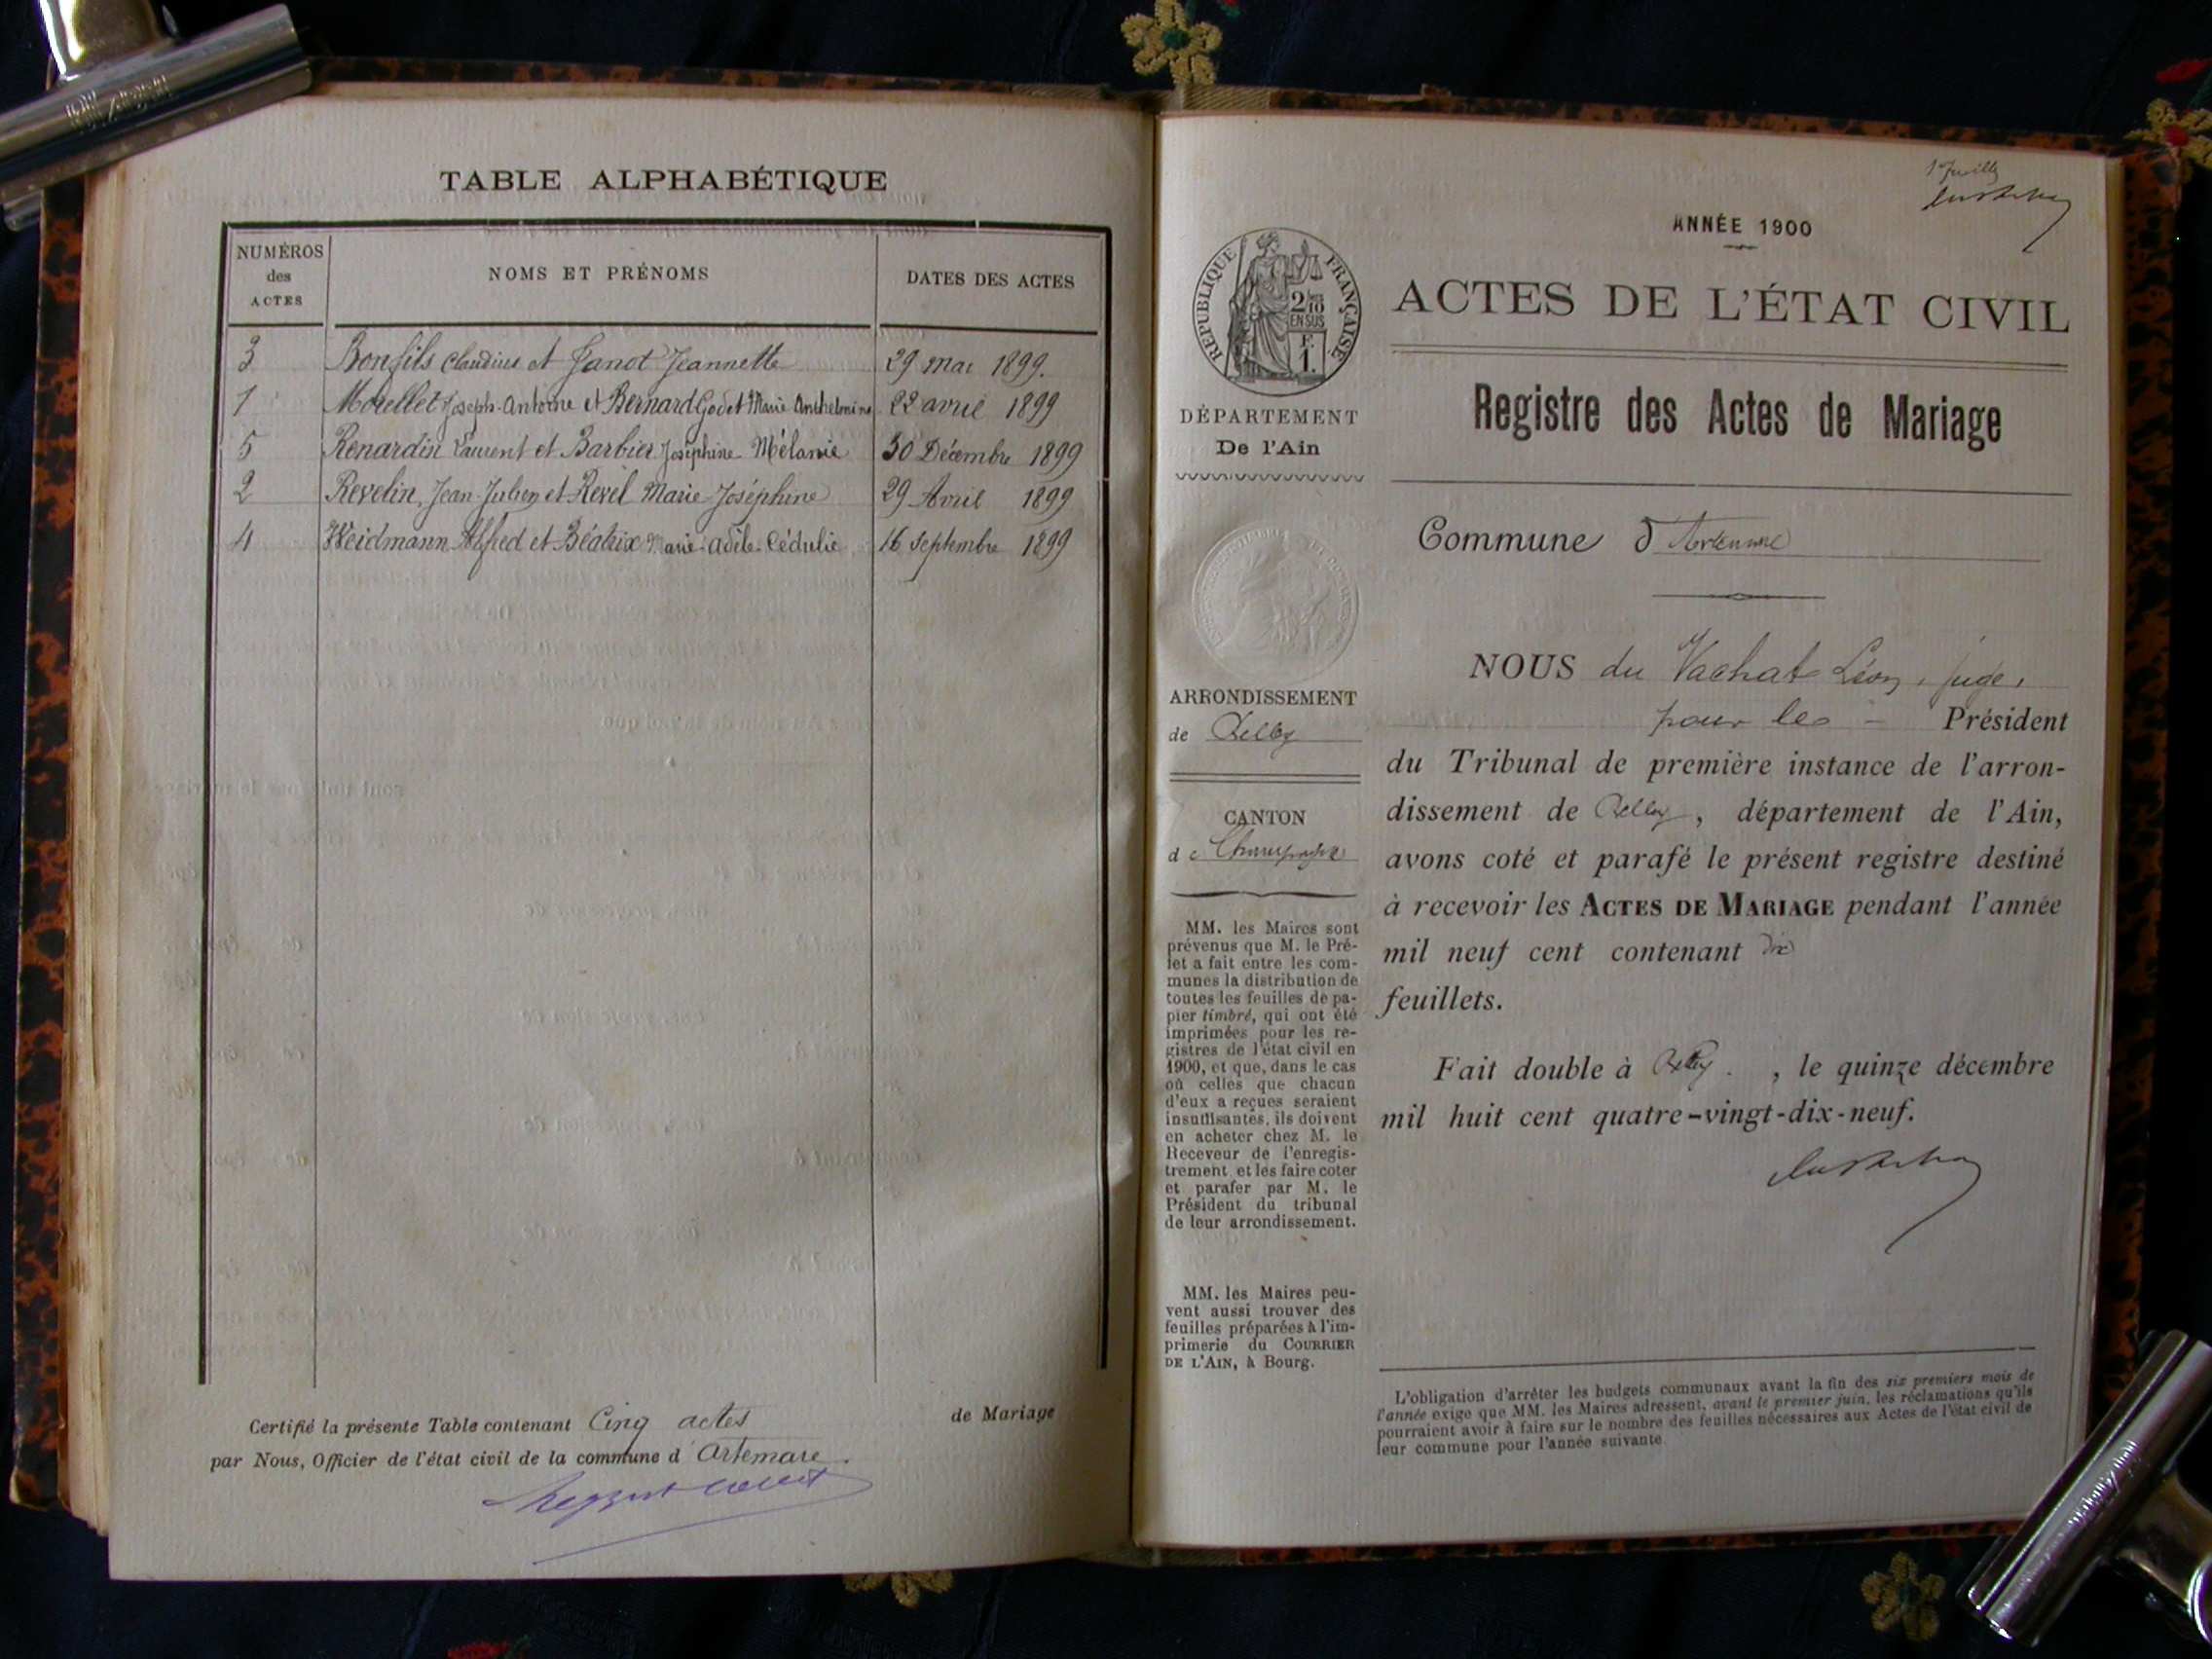 TABLE ALPHABÉTIQUE
NUMÉROS
des
ACTES
NOMS ET PRÉNOMS
DATES DES ACTES
3 Bonfils Claudius et Janot Jeannette 29 mai 1899.
1 Morellet Joseph-Antoine et Bernard Godet Marie Anthelmine 22 avril 1899
5 Renardin Laurent et Barbier Joséphine Mélanie 30 Décembre 1899
2 Revelin Jean-Julien et Revel Marie-Joséphine 29 Avril 1899
4 Weidmann Alfred et Béatrix Marie-Adèle-Cédulie 16 Septembre 1899
Certifié la présente Table contenant Cinq actes de Mariage
par Nous, Officier de l'état civil de la commune d'Artemare.
ANNÉE 1900
RÉPUBLIQUE FRANÇAISE
2/10
EN SUS
F.
1.
DÉPARTEMENT
De l'Ain
ARRONDISSEMENT
de Belley
CANTON
de Champagne
MM. les Maires sont
prévenus que M. le Pré-
fet a fait entre les com-
munes la distribution de
toutes les feuilles de pa-
pier timbré, qui ont été
imprimées pour les re-
gistres de l'état civil en
1900, et que, dans le cas
où celles que chacun
d'eux a reçues seraient
insuffisantes, ils doivent
en acheter chez M. le
Receveur de l'enregis-
trement et les faire coter
et parafer par M. le
Président du tribunal
de leur arrondissement.
MM. les Maires peu-
vent aussi trouver des
feuilles préparées à l'im-
primerie du COURRIER
DE L'AIN, à Bourg.
ACTES DE L'ÉTAT CIVIL
Registre des Actes de Mariage
Commune d'Artemare
NOUS du Vachat Léon, juge,
pour le Président
du Tribunal de première instance de l'arron-
dissement de Belley, département de l'Ain,
avons coté et parafé le présent registre destiné
à recevoir les ACTES DE MARIAGE pendant l'année
mil neuf cent contenant dix
feuillets.
Fait double à Belley, le quinze décembre
mil huit cent quatre-vingt-dix-neuf.
L'obligation d'arrêter les budgets communaux avant la fin des six premiers mois de
l'année exige que MM. les Maires adressent, avant le premier juin, les réclamations qu'ils
pourraient avoir à faire sur le nombre des feuilles nécessaires aux Actes de l'état civil de
leur commune pour l'année suivante.